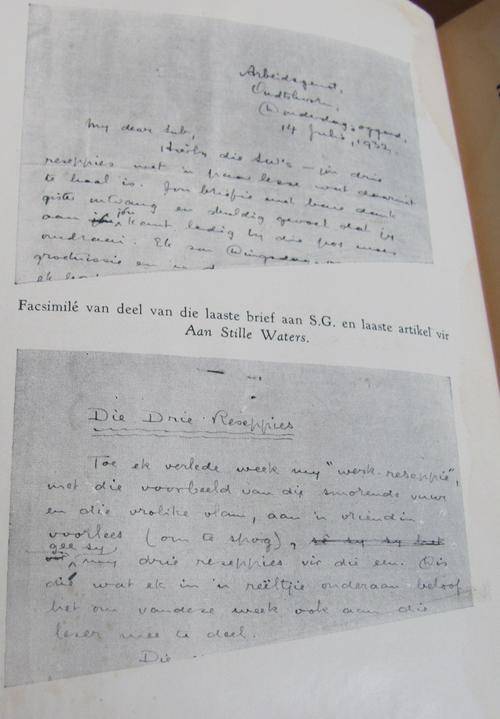 Arbeidsgenot,
Oudtshoorn,
Donderdagoggend,
14 Julie, 1932.
My dear Sub,
Hierby die S.W's — en drie
reseppies met 'n paar lesse wat daaruit
te haal is. Jou briefie met baie dank
gister ontvang en skuldig gevoel dat ek
aan jou kant ledig by die pos moes
omdraai. Ek sal Dingsdag
Facsimilé van deel van die laaste brief aan S.G. en laaste artikel vir
Aan Stille Waters.
Die Drie Reseppies
Toe ek verlede week my "werk-reseppie",
met die voorbeeld van die smorende vuur
en die vrolike vlam, aan 'n vriendin
voorlees (om te spog), sê sy sy het
gee sy
my drie reseppies vir die een. Dis
dié wat ek in 'n reëltjie onderaan beloof
het om vandese week ook aan die
leser mee te deel.
Die